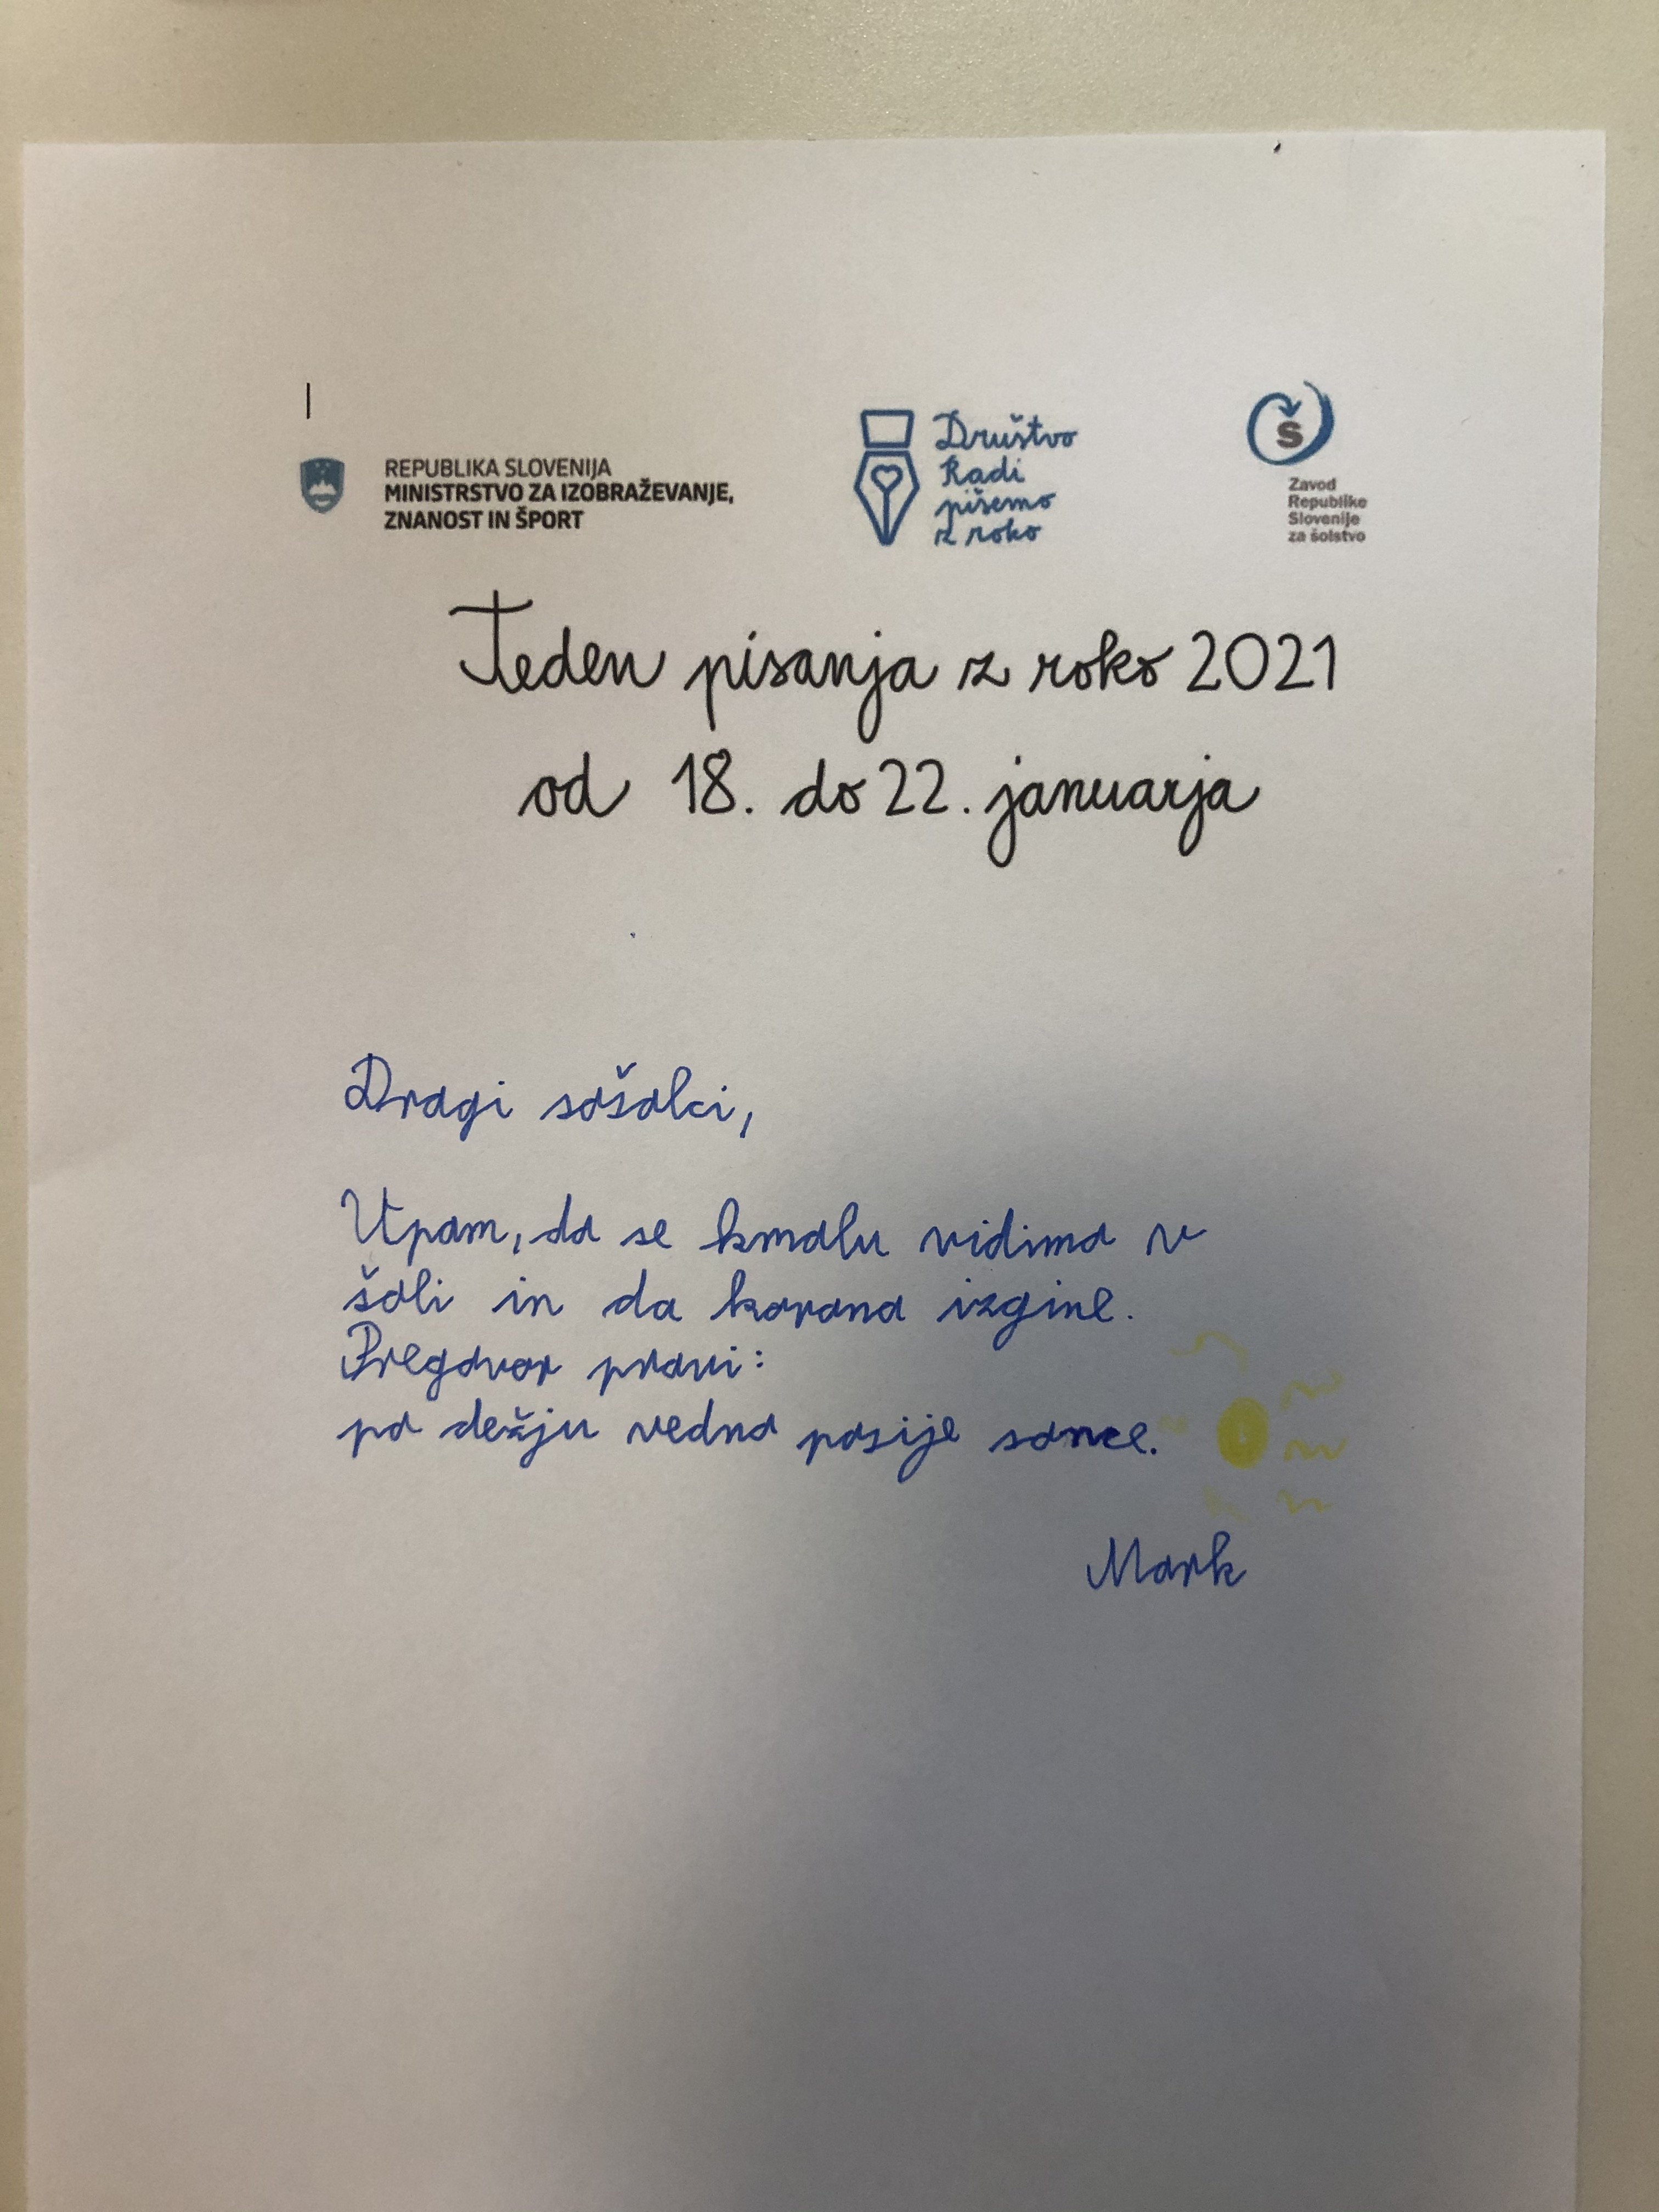 REPUBLIKA SLOVENIJA
MINISTRSTVO ZA IZOBRAŽEVANJE,
ZNANOST IN ŠPORT
Društvo
Radi
pišemo
z roko
Š
Zavod
Republike
Slovenije
za šolstvo
Teden pisanja z roko 2021
od 18. do 22. januarja
Dragi sošolci,
Upam, da se kmalu vidimo v
šoli in da korona izgine.
Pregovor pravi:
po dežju vedno posije sonce.
Mark